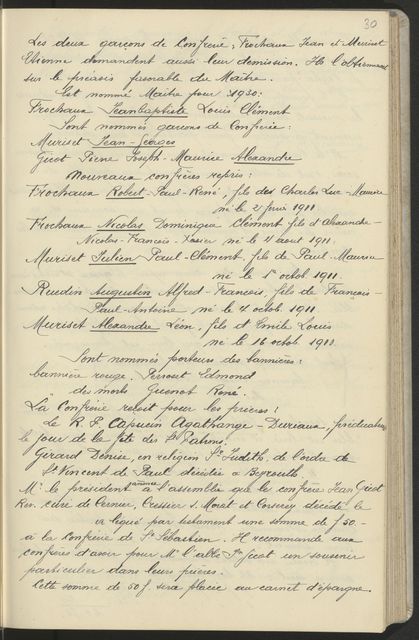 30
Les deux garçons de Confrérie, Frochaux Jean et Muriset
Etienne demandent aussi leur démission. Ils l'obtiennent
sur le préavis favorable du Maître.
Est nommé Maître pour 1930:
Frochaux Jeanbaptiste Louis Clément
Sont nommés garçons de Confrérie:
Muriset Jean-Georges
Gicot Pierre Joseph-Maurice Alexandre
Nouveaux confrères repris:
Frochaux Robert-Paul-René, fils de Charles Luc-Maurice
né le 21 juin 1911
Frochaux Nicolas Dominique Clément fils d'Alexandre-
Nicolas-François-Xavier né le 4 aout 1911.
Muriset Julien Paul-Clément, fils de Paul-Maurice
né le 1er octob. 1911.
Ruedin Augustin Alfred-François, fils de François-
Paul-Antoine né le 7 octob. 1911
Muriset Alexandre Léon, fils d'Emile Louis
né le 16 octob. 1911
Sont nommés porteurs des bannières:
bannière rouge: Persout Edmond
des morts Guenot René.
La Confrérie reçoit pour les prières:
Le R. P. Capucin Agathange-Duriaux, prédicateur
le jour de la fête des St Patrons.
Girard Denise, en religion Sr Judith, de l'ordre de
St Vincent de Paul décédée à Beyrouth.
Mr le président annonce à l'assemblée que le confrère Jean Gicot
Rév. curé de Cernier, Cressier s. Morat et Corserey décédé le
a légué par testament une somme de f 50.-
à la Confrérie de St Sébastien. Il recommande aux
confrères d'avoir pour Mr l'abbé Jn Gicot un souvenir
particulier dans leurs prières.
Cette somme de 50 f. sera placée au carnet d'épargne.